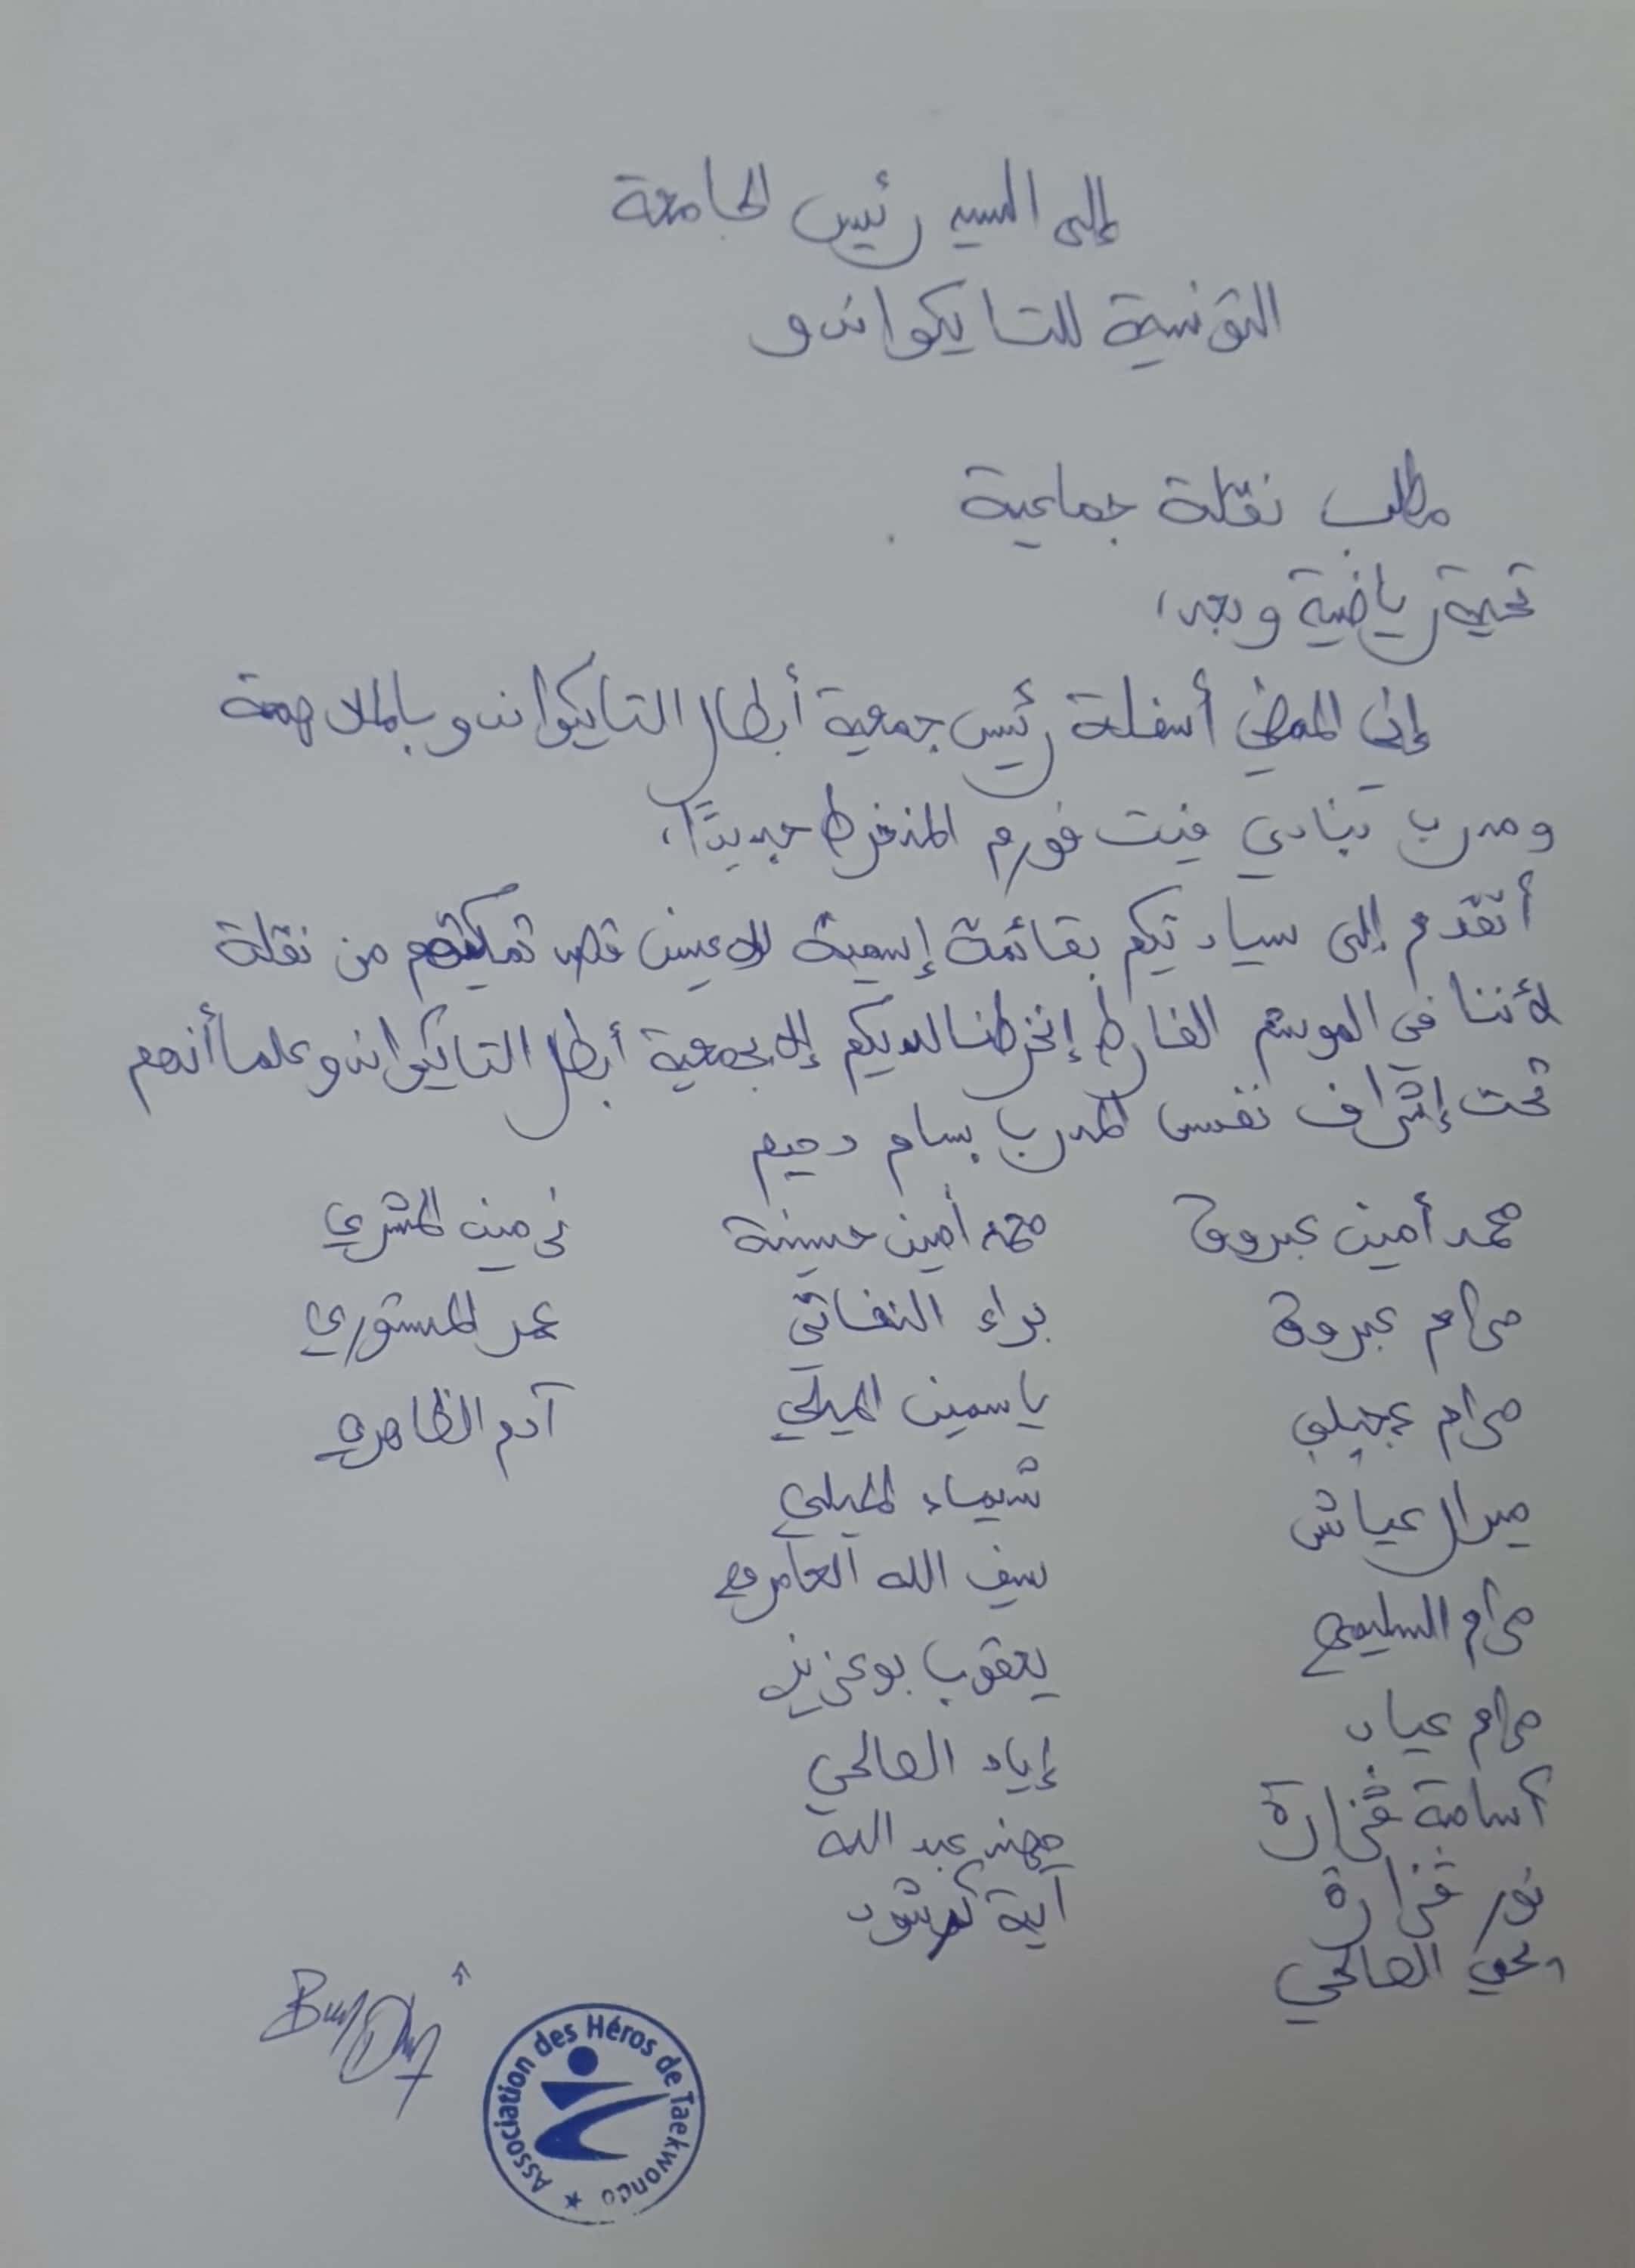 إلى السيد رئيس الجامعة
التونسية للتايكواندو
مطلب نقلة جماعية
تحية رياضية وبعد،
إني الممضي أسفله رئيس جمعية أبطال التايكواندو بالملاسة
ومدرب بنادي فيت فورم المنخرط جديدًا،
أتقدم إلى سيادتكم بقائمة إسمية للاعبين قصد تمكينهم من نقلة
لأننا في الموسم الفارط إنخرطنا لديكم إلا بجمعية أبطال التايكواندو علما أنهم
تحت إشراف نفس المدرب بسام دميم
محمد أمين عبروق
مرام عبروق
مرام عجيلي
ميرال عياش
مرام السليمي
مرام عياد
أسامة ڨزارة
نور ڨزارة
يحي الصالحي
محمد أمين حسينة
براء النفاتي
ياسمين الميلي
شيماء الميلي
سيف الله العامري
يعقوب بوعزيز
إياد الصالحي
مهند عبد الله
آية
نرمين المشري
عمر المستوري
آدم الظاهري
Association des Héros de Taekwondo